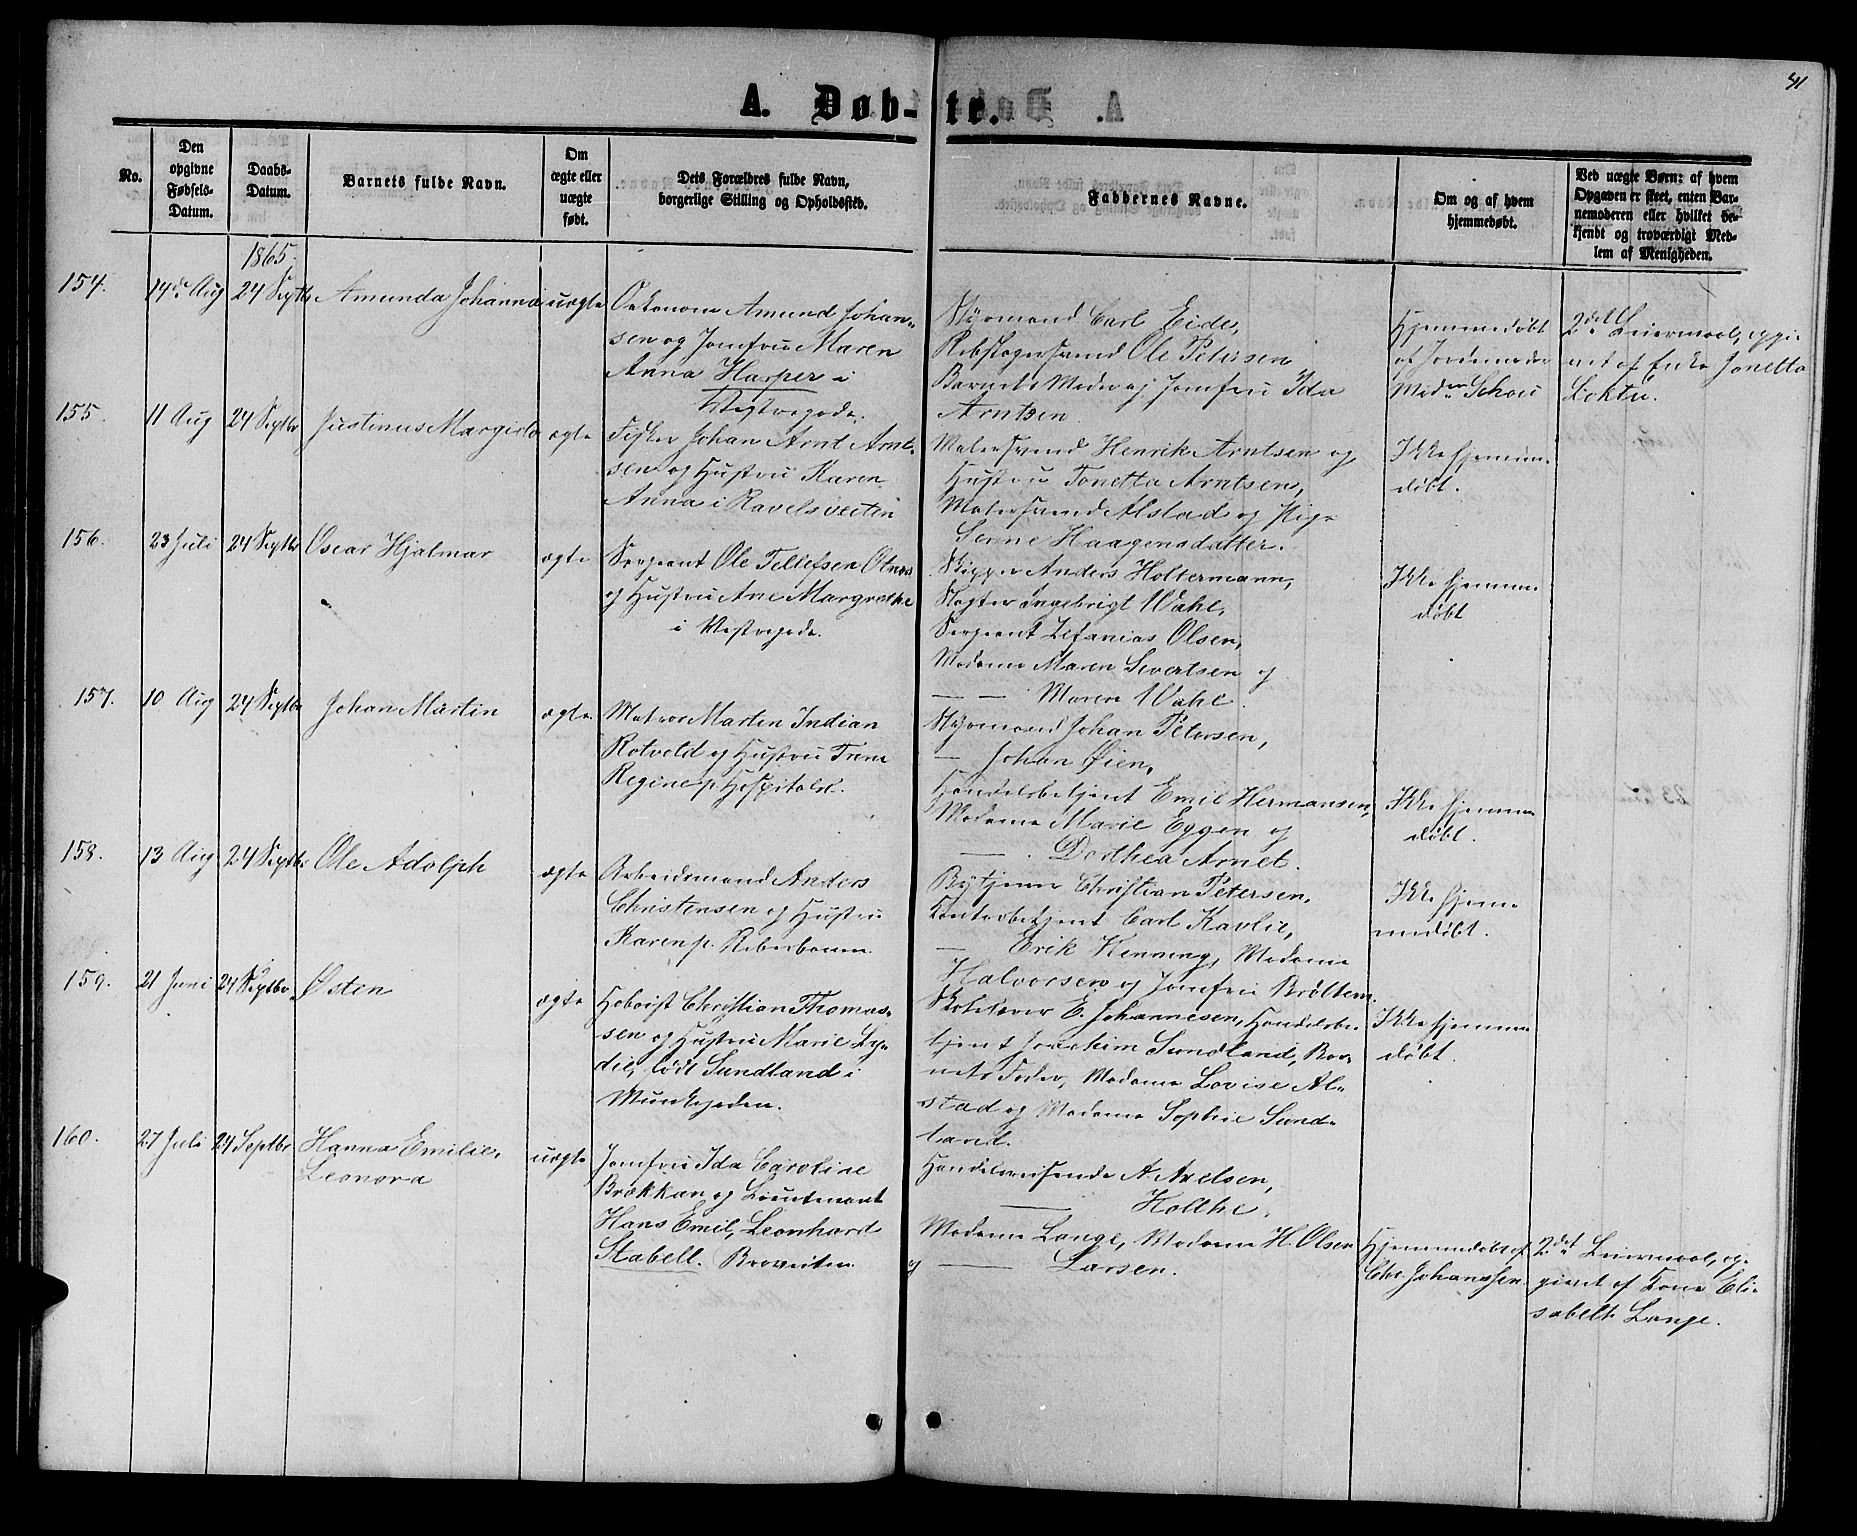 41
A. Døb-te.
No.
Den
opgivne
Fødsels-
Datum.
Daabs-
Datum.
Barnets fulde Navn.
Om
ægte eller
uægte
født.
Dets Forældres fulde Navn,
borgerlige Stilling og Opholdssted.
Faddernes Navne.
Om og af hvem
hjemmedøbt.
Ved uægte Børn: af hvem
Opgaven er skeet, enten Bar-
nemoderen eller hvilket be-
kjendt og troværdigt Med-
lem af Menigheden.
1865.
154.
14de Aug
24 Septbr
Amunda Johanna
uægte
Oekonom Amund Johan-
sen og Jomfru Maren
Anna Harper i
Vestregade.
Styrmand Carl Eide,
Rebslagersvend Ole Petersen
Barnets Moder og Jomfru Ida
Arntsen
Hjemmedøbt
af Jordemoder
Madm Schou
2det Leiermaal, opgi-
vet af Enke Jonetta
Loktu.
155.
11 Aug
24 Septbr
Justinus Margido
ægte
Fisker Johan Arnt Arnt-
sen og Hustru Karen
Anna i Ravelsveiten
Malersvend Henrik Arntsen og
Hustru Tonetta Arntsen,
Malersvend Alstad og Pige
Serine Haagensdatter.
Ikke hjemme-
døbt.
156.
23 Juli
24 Septbr
Oscar Hjalmar
ægte
Sergeant Ole Tellefsen
og Hustru Ane Margrethe
i Vestregade.
Skipper Anders Holtermann,
Slagter Ingebrigt Wahl,
Sergeant Zefanias Olsen,
Madame Maren Sivertsen og
— — Maren Wahl.
Ikke hjemme-
døbt
157.
10 Aug
24 Septbr
Johan Martin
ægte
Matros Martin Indian
Rotvold og Hustru Trine
Regine p. Hospitalsl.
Styrmand Johan Petersen,
— Johan Øien,
Handelsbetjent Emil Hermansen,
Madame Marie Eggen og
— . Dorthea Arnet.
Ikke hjemme-
døbt.
158.
13 Aug
24 Septbr
Ole Adolph
ægte
Arbeidsmand Anders
Christensen og Hustru
Karen p.
Bytjener Christian Petersen,
Contorbetjent Carl Kavlie,
— Erik Kenning, Madame
Halvorsen og Jomfru Brøttem.
Ikke hjem-
medøbt.
159.
21 Juni
24 Septbr.
Østen
ægte
Christian Thomas-
sen og Hustru Marie Ly-
die, født Sundland i
Munkegaden.
Skolelærer E. Johannesen, Handelsbe-
tjent Joachim Sundland, Bar-
nets Fader, Madame Lovise Al-
stad og Madame Sophie Sund-
land.
Ikke hjemme-
døbt.
160.
27 Juli
24 Septbr
Hanna Emilie,
Leonora
uægte
Jomfru Ida Caroline
Brækkan og Lieutenant
Hans Emil, Leonhard
Stabell. Braveiten
Handelsreisende A. Axelsen,
— Holthe.
Madame Lange, Madame H. Olsen
og — Larsen.
Hjemmedøbt af
Chr. Johanssen.
2det Leiermaal, op-
givet af Kone Eli-
sabeth Lange.